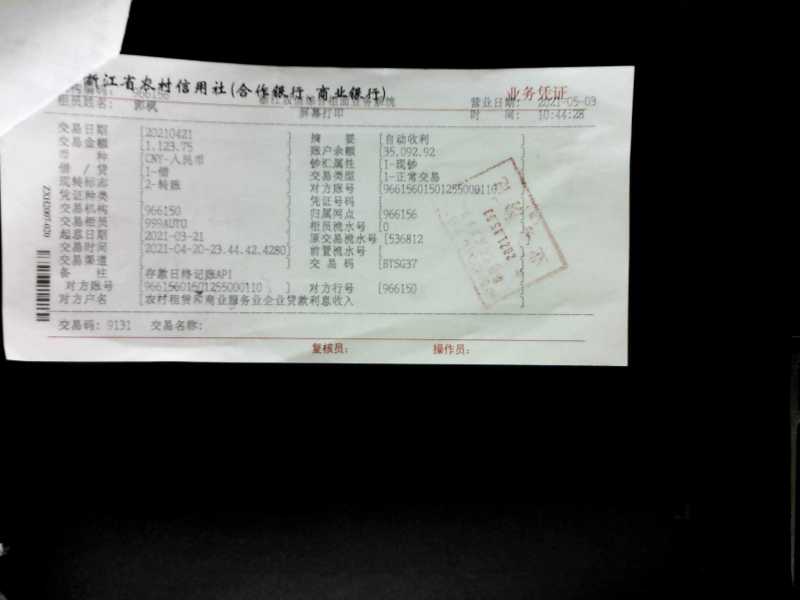 浙江省农村信用社(合作银行,商业银行) 业务凭证
机构编码: 966156 营业日期: 2021-05-03
柜员姓名: 郭枫 屏幕打印 时 间: 10:44:28
交易日期 [20210421 ] 摘 要 [自动收利 ]
交易金额 [1,123.75 ] 账户余额 [35,092.92 ]
币 种 [CNY-人民币 ] 钞汇属性 [1-现钞 ]
借 / 贷 [1-借 ] 交易类型 [1-正常交易 ]
现转标志 [2-转账 ] 对方账号 [96615601501255000110
凭证种类 [ ] 凭证号码 [ ]
交易机构 [966150 ] 归属网点 [966156 ]
交易柜员 [999AUTO ] 柜员流水号 [0 ]
起息日期 [2021-03-21 ] 原交易流水号 [536812 ]
交易时间 [2021-04-20-23.44.42.4280] 前置流水号 [ ]
交易渠道 [ ] 交 易 码 [BTSG37 ]
备 注 [存款日终记账API
对方账号 [96615601501255000110 ] 对方行号 [966150 ]
对方户名 [农村租赁和商业服务业企业贷款利息收入 ]
交易码: 9131 交易名称:
复核员: 操作员: